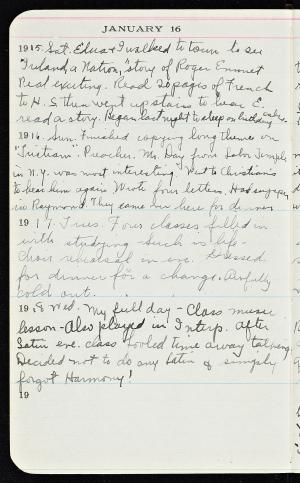 JANUARY 16
1915. Sat. Edna & I walked to town to see
"Ireland, a Nation," story of Roger Emmet
Real exciting. Read 20 pages of French
to H. S. then went upstairs to hear E.
read a story. Began last night to sleep on
1916. Sun. Finished copying long theme on
"Tristram". Preacher, Mr. Day from Labor Temple
in N.Y. was most interesting. Went to Christian's
to hear him again. Wrote four letters. Had
in Raymond. They came over here for dinner
1917. Tues. Four classes filled in
with studying - such is life -
Choir rehearsal in eve. Dressed
for dinner for a change. Awfully
cold out.
1918 Wed. My full day - Class music
lesson - Also played in Interp. After
Latin eve. class fooled time away talking.
Decided not to do any Latin & simply
forgot Harmony!
19